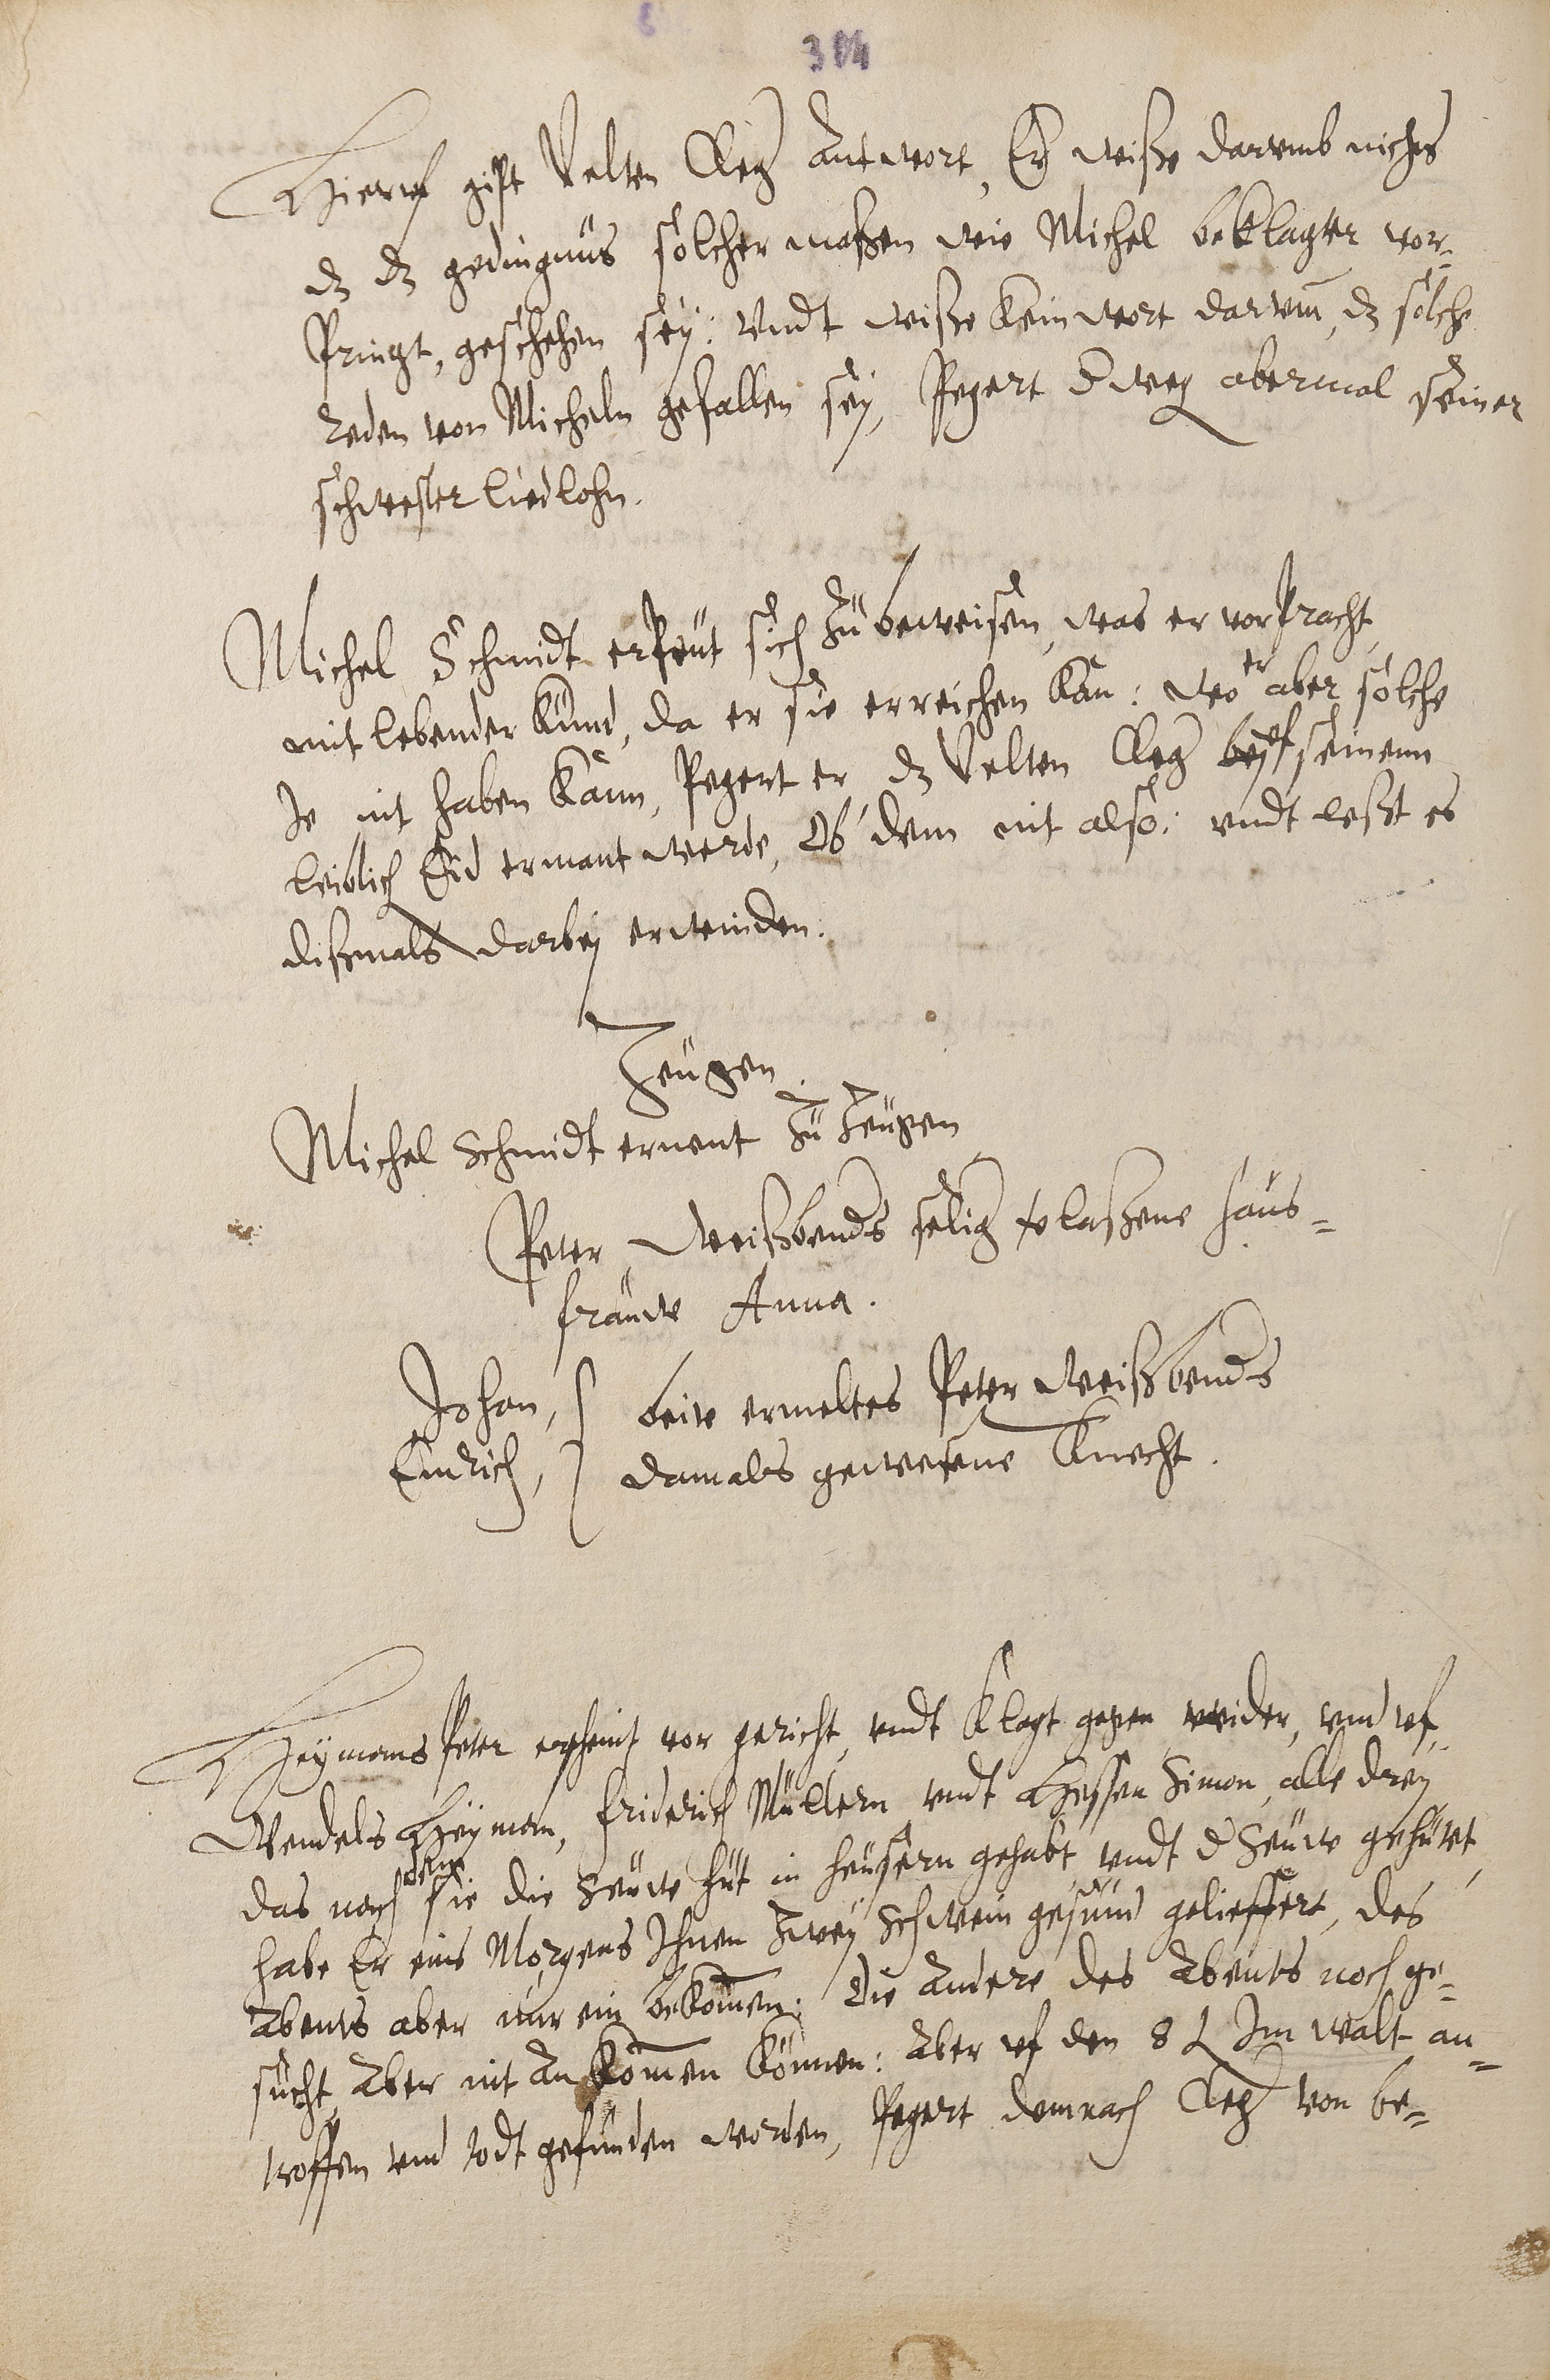 304
Hieruf gipt Velten Cleg. Antwort, Er wiße darumb nichts
dz dz gedingnus solcher maßen wie Michel beklagter vor-
Pringt, geschehen sey: Undt wiße kein wort darvon, dz solche
reden von Micheln gefallen sey, Pegert abermal seiner
schwester Liedlohn.
Michel Schmidt erpeut sich zu beweisen, was er vorpracht,
mit lebender kund, da er sie erreichen kan: wo er aber solche
Je nit haben kann, Pegert er dz Velten Cleg. uf seinem
leiblich Eid ermant werde, Ob dem nit also: undt leßt es
dißmals darbey erwinden.
Zeugen.
Michel Schmidt ernent zu Zeugen
Peter Weißbends selig verlaßene haus-
frauwe Anna.
Johan, beide ermeltes Peter Weißbends
Endrich, damals gewesene Knecht.
Heymans Peter erscheint vor gericht, undt klagt gegen wider, und uf
Wendels Heyman, Friderich Müllern undt Hessen Simon, alle drey
das nach deme sie die Seuwe hut in heusern gehabt, undt d Seuwe gehütet,
habe Er eins Morgens Ihnen Zwey Schwein gesund gelieffert, des
Abents aber nur ein bekommen: Die Andere des Abents noch ge-
sucht, Aber nit Ankommen können: Aber uf den 8 t Im walt an-
troffen und todt gefunden worden, Pegert demnach Cleg. von be-